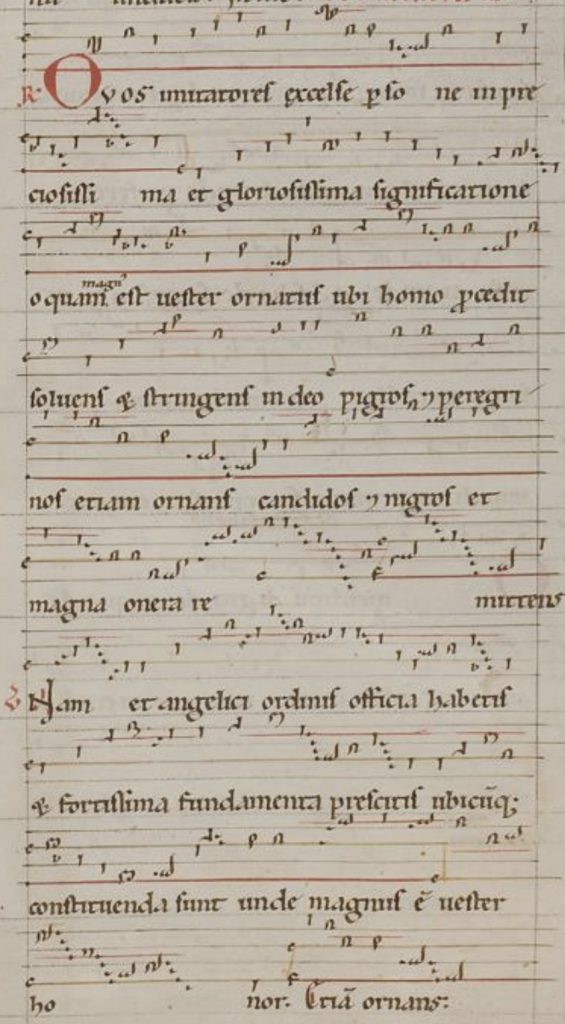 R O vos imitatores excelse pso ne in pre
ciosissi ma et gloriosissima significatione
o quam magn' est uester ornatus ubi homo pcedit
soluens & stringens in deo pigros ⁊ peregri
nos etiam ornans candidos ⁊ nigros et
magna onera re mittens
V Nam et angelici ordinis officia habetis
& fortissima fundamenta prescitis ubicūq;
constituenda sunt unde magnus ē uester
ho nor. Etiā ornans: